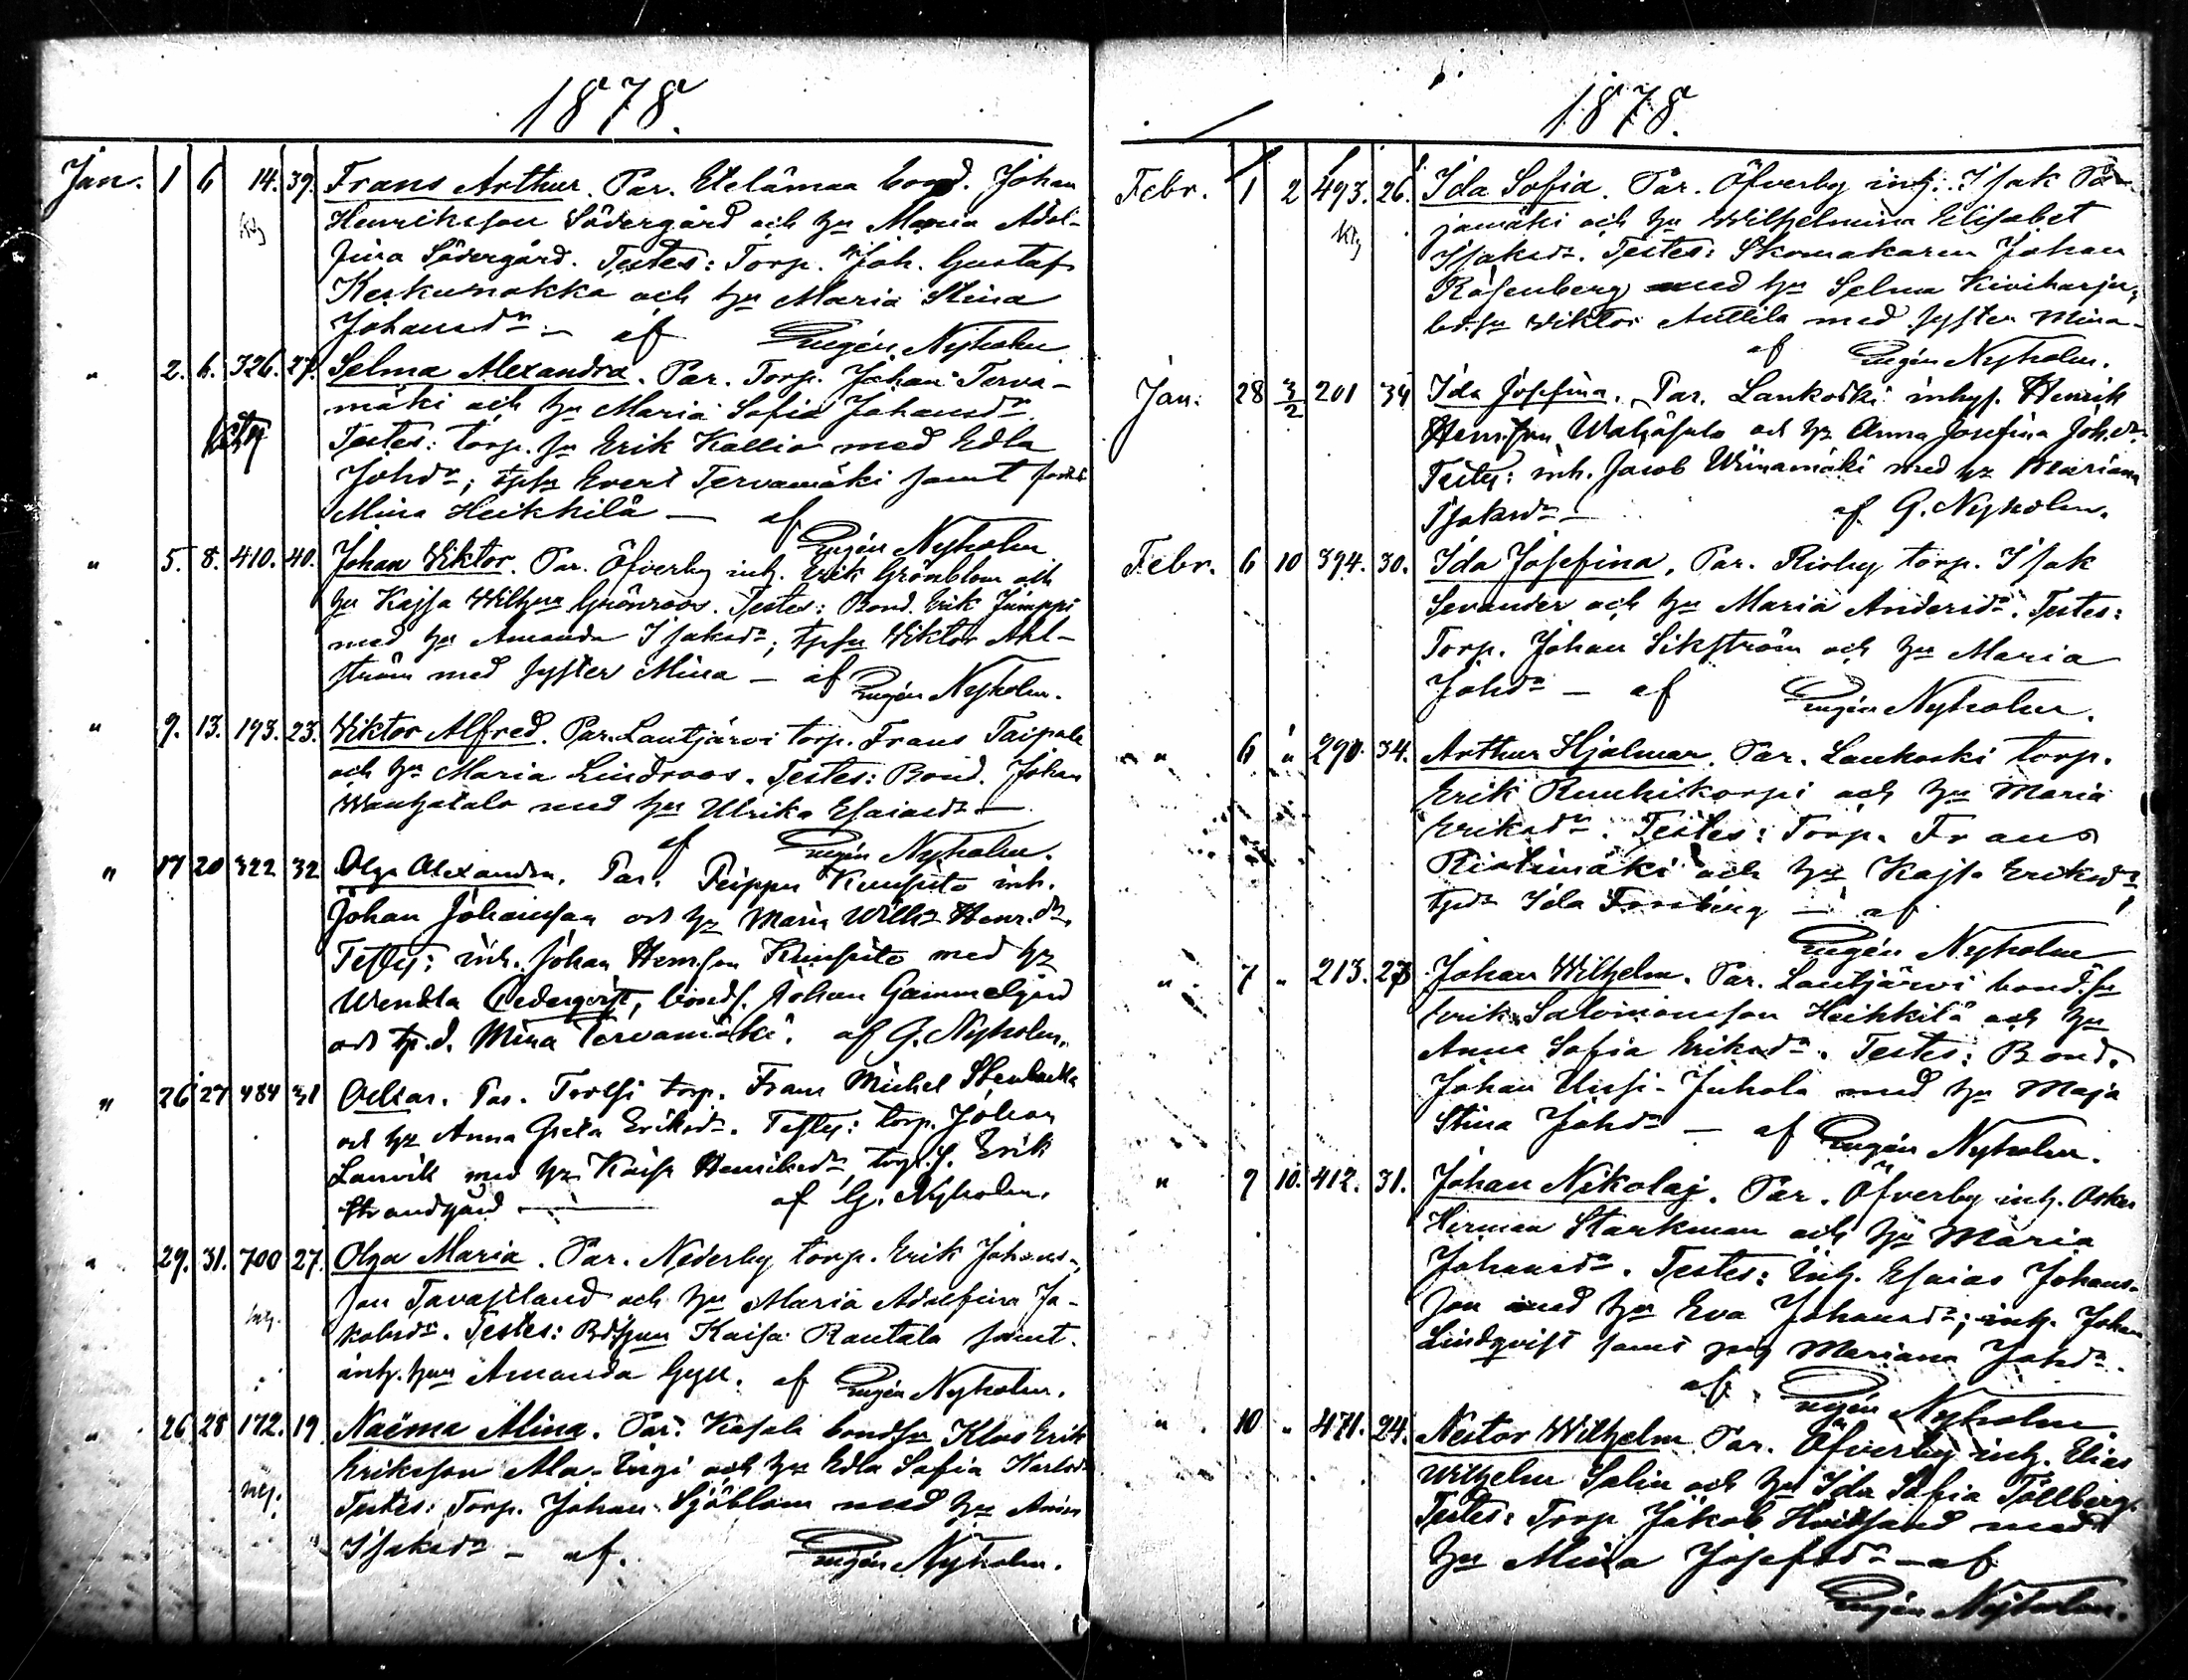 1878.
Jan. 1 6 14. 39. Frans Arthur. Par. Etelämaa bond. Johan
Henriksson Södergård och hu Maria Adol-
fina Södergård. Testes: Torp. Joh. Gustaf
Kerkunokka och hu Maria Stina
Johansdr — af Eugén Nyholm
" 2. 6. 326. 27. Selma Alexandra. Par. Torp. Johan Terva-
mäki och hu Maria Sofia Johansdr.
Testes: torp. sn Erik Kallio med Edla
Johdr; tpsn Evert Tervamäki samt
Mina Heikkilä — af
Eugén Nyholm
" 5. 8. 410. 40. Johan Viktor. Par. Öfverby inh. Erik Grönblom och
hu Kajsa Wilhna Grönroos. Testes: Bond. Erik Jumppi
med hu Amanda Isaksdr; tpsn Viktor Ahl-
ström med syster Mina — af Eugén Nyholm.
" 9. 13. 193. 23. Viktor Alfred. Par. Lautjärvi torp. Frans Taipale
och hu Maria Lindroos. Testes: Bond. Johan
Wanhatalo med hu Ulrika Esaiasdr —
af Eugén Nyholm.
" 17 20 322 32 Olga Alexandra. Par. Peippu inh.
Johan Johansson och hu Maria Wilh. Henr.dr.
Testes: inh. Johan Henr.son med hu
Wendla Cederqvist, bonds. Johan Gammelgård
och tp.d. Mina Tervamäki. af G. Nyholm.
" 26 27 484 31 Oskar. Par. Torp. Frans Michel Stenbacka
och hu Anna Greta Eriksdr. Testes: torp. Johan
Lanvik med hu Kaisa Henriksdr, torp.s. Erik
Strandgård — af G. Nyholm.
" 29. 31. 700 27. Olga Maria. Par. Nederby torp. Erik Johans-
son Tavastland och hu Maria Adolfina Ja-
kobsdr. Testes: Kaisa Rautala samt
inh. hun Amanda Gyll. af Eugén Nyholm.
" 26 28 172. 19 Naëma Alina. Par. Kasala bondsn Klas Erik
Eriksson Ala-Ingi och hu Edla Sofia Karlsdr
Testes: Torp. Johan Sjöblom med hu Anna
Isaksdr — af. Eugén Nyholm.
1878.
Febr. 1 2 493. 26. Ida Sofia. Par. Öfverby inh. Isak
jamäki och hu Wilhelmina Elisabet
Isaksdr. Testes: Skomakaren Johan
Rosenberg med hu Selma Kiviharju,
bd.sn Viktor Anttila med syster Mina —
af Eugén Nyholm.
Jan. 28 3/2 201 34 Ida Josefina. Par. Lankoski inhys. Henrik
Henr.son Waljasalo och hu Anna Josefina Joh.dr.
Testes: inh. Jacob Wiinamäki med hu Mariana
Isaksdr — af G. Nyholm.
Febr. 6 10 394. 30. Ida Josefina. Par. Risby torp. Isak
Sevander och hu Maria Andersdr. Testes:
Torp. Johan Sikström och hu Maria
Johdr — af Eugén Nyholm.
" 6 " 290. 34. Arthur Hjalmar. Par. Lankoski torp.
Erik Ruuhikorpi och hu Maria
Eriksdr. Testes: Torp. Frans
Ristimäki och hu Kajsa Eriksdr;
tpdr Ida Forsberg — af
Eugén Nyholm
" 7 " 213. 27 Johan Wilhelm. Par. Lautjärvi bond.sn
Erik Salomonsson Heikkilä och hu
Anna Sofia Eriksdr. Testes: Bond.
Johan Uusi-Juhola med hu Maja
Stina Johdr — af Eugén Nyholm.
" 9 10. 412. 31. Johan Nikolaj. Par. Öfverby inh. Oskar
Herman Starkman och hu Maria
Johansdr. Testes: Inh. Esaias Johans-
son med hu Eva Johansdr; inh. Johan
Lindqvist samt pig Mariana Johdr.
af Eugén Nyholm.
" 10 " 471. 24. Nestor Wilhelm. Par. Öfverby inh. Elias
Wilhelm Salin och hu Ida Sofia Tollberg.
Testes: Torp. Jakob Hvitsand med
hu Mina Josefsdr — af
Eugén Nyholm.